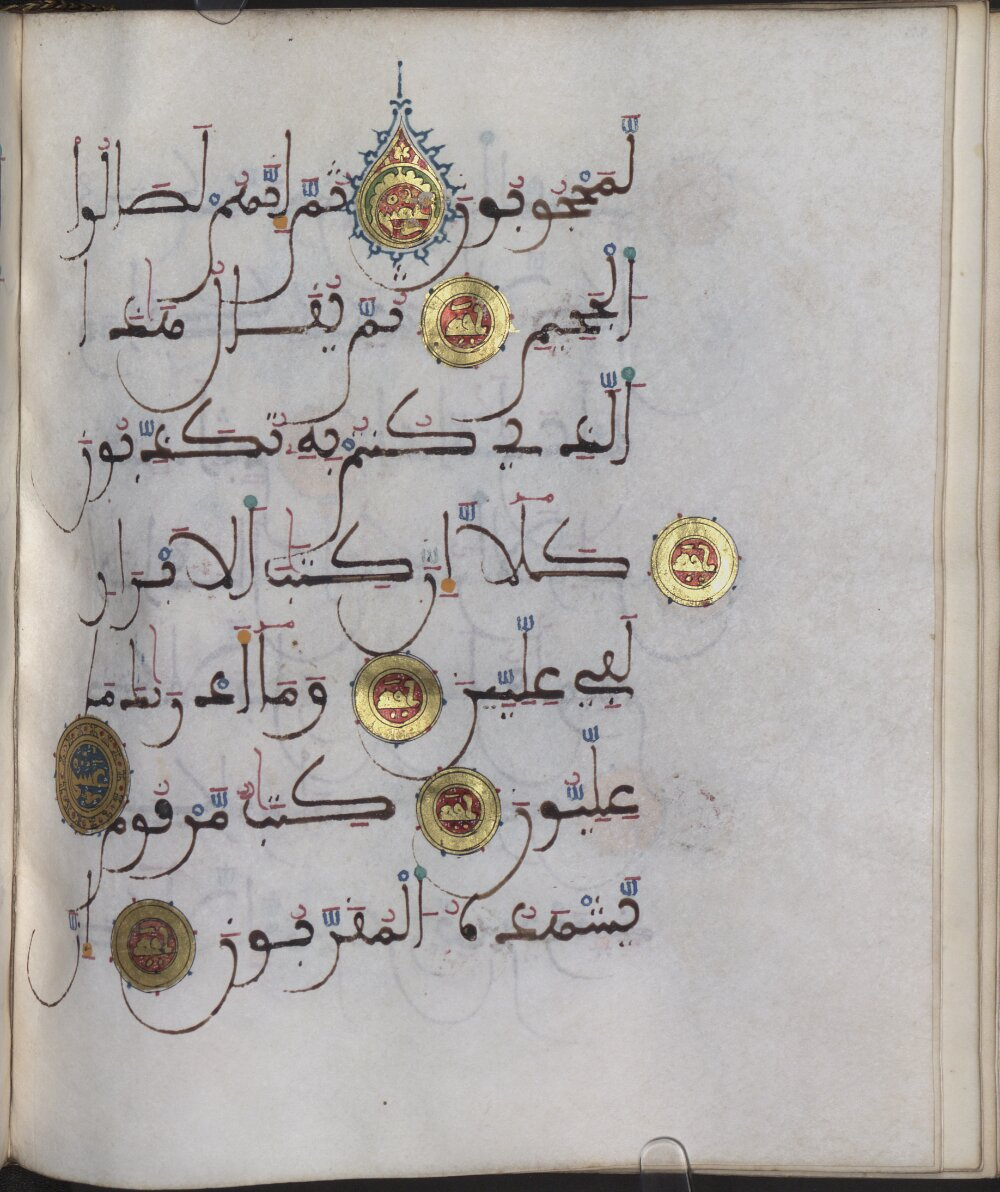 لَمَحْجُوبُونَ ثُمَّ إِنَّهُمْ لَصَالُوا
الْجَحِيمِ ثُمَّ يُقَالُ هَٰذَا ا
لَّذِي كُنْتُمْ بِهِ تُكَذِّبُونَ
كَلَّا إِنَّ كِتَٰبَ الْأَبْرَارِ
لَفِي عِلِّيِّينَ وَمَا أَدْرَىٰكَ مَا
عِلِّيُّونَ كِتَٰبٌ مَّرْقُومٌ
يَشْهَدُهُ الْمُقَرَّبُونَ إِنَّ